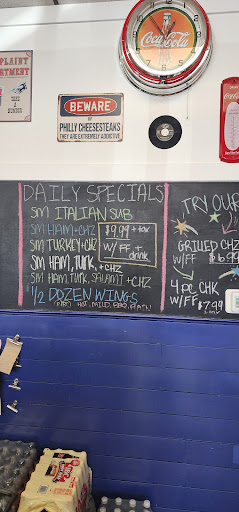 PLAINT
RTMENT
TAKE A
NUMBER
BEWARE
OF
PHILLY CHEESESTEAKS
THEY ARE EXTREMELY ADDICTIVE
Coca-Cola
DAILY SPECIALS
SM ITALIAN SUB
SM HAM+CHZ
SM TURKEY+CHZ
SM HAM, TURK, +CHZ
SM HAM, TURK, SALAMI +CHZ
1/2 DOZEN WINGS
HOT, MILD, BBQ, PLAIN
$9.99 + tax
W/ FF +
drink
TRY OUR
GRILLED CHZ
W/FF $6.99
4 PC CHK
W/FF $7.99